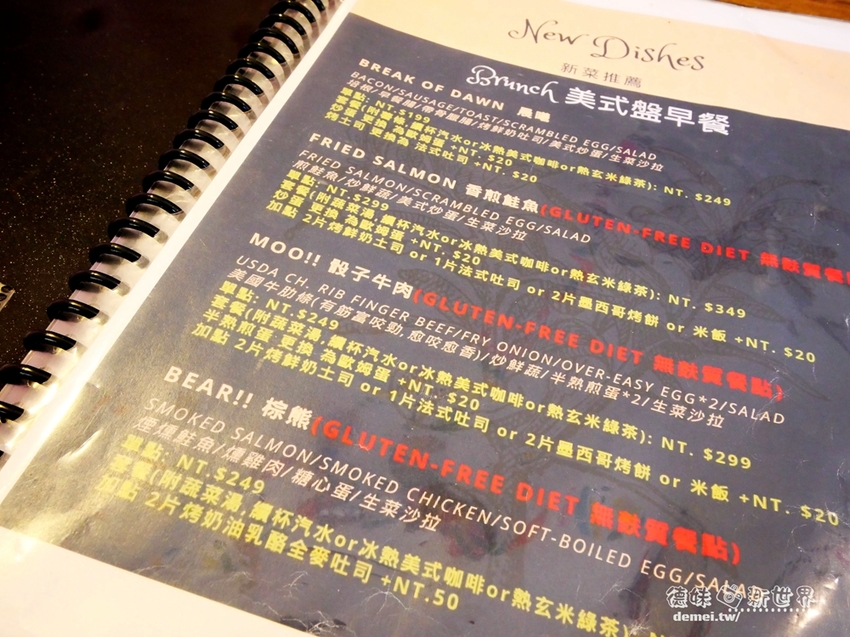 New Dishes
新菜推薦
Brunch 美式盤早餐
BREAK OF DAWN 晨曦
BACON/SAUSAGE/TOAST/SCRAMBLED EGG/SALAD
培根/早餐腸/帶骨臘腸/烤鮮奶吐司/美式炒蛋/生菜沙拉
單點: NT.$199
套餐(附薯條,續杯汽水or冰熱美式咖啡or熱玄米綠茶): NT. $249
炒蛋 更換 為歐姆蛋 +NT. $20
烤土司 更換為 法式吐司 +NT. $20
FRIED SALMON 香煎鮭魚(GLUTEN-FREE DIET 無麩質餐點
FRIED SALMON/SCRAMBLED EGG/SALAD
煎鮭魚/炒鮮蔬/美式炒蛋/生菜沙拉
單點: NT.$299
套餐(附蔬菜湯,續杯汽水or冰熱美式咖啡or熱玄米綠茶): NT. $349
炒蛋 更換 為歐姆蛋 +NT. $20
加點 2片烤鮮奶土司 or 1片法式吐司 or 2片墨西哥烤餅 or 米飯 +NT. $20
MOO!! 骰子牛肉(GLUTEN-FREE DIET 無麩質餐點)
USDA CH. RIB FINGER BEEF/FRY ONION/OVER-EASY EGG*2/SALAD
美國牛肋條(有筋富咬勁,愈咬愈香)/炒鮮蔬/半熟煎蛋*2/生菜沙拉
單點: NT.$249
套餐(附蔬菜湯,續杯汽水or冰熱美式咖啡or熱玄米綠茶): NT. $299
半熟煎蛋 更換 為歐姆蛋 +NT. $20
加點 2片烤鮮奶土司 or 1片法式吐司 or 2片墨西哥烤餅 or 米飯 +NT. $20
BEAR!! 棕熊(GLUTEN-FREE DIET 無麩質餐點)
SMOKED SALMON/SMOKED CHICKEN/SOFT-BOILED EGG/SALAD
煙燻鮭魚/燻雞肉/糖心蛋/生菜沙拉
單點: NT.$249
套餐(附蔬菜湯,續杯汽水or冰熱美式咖啡or熱玄米綠茶)
加點 2片烤奶油乳酪全麥吐司 +NT.50
德味新世界
demei.tw/